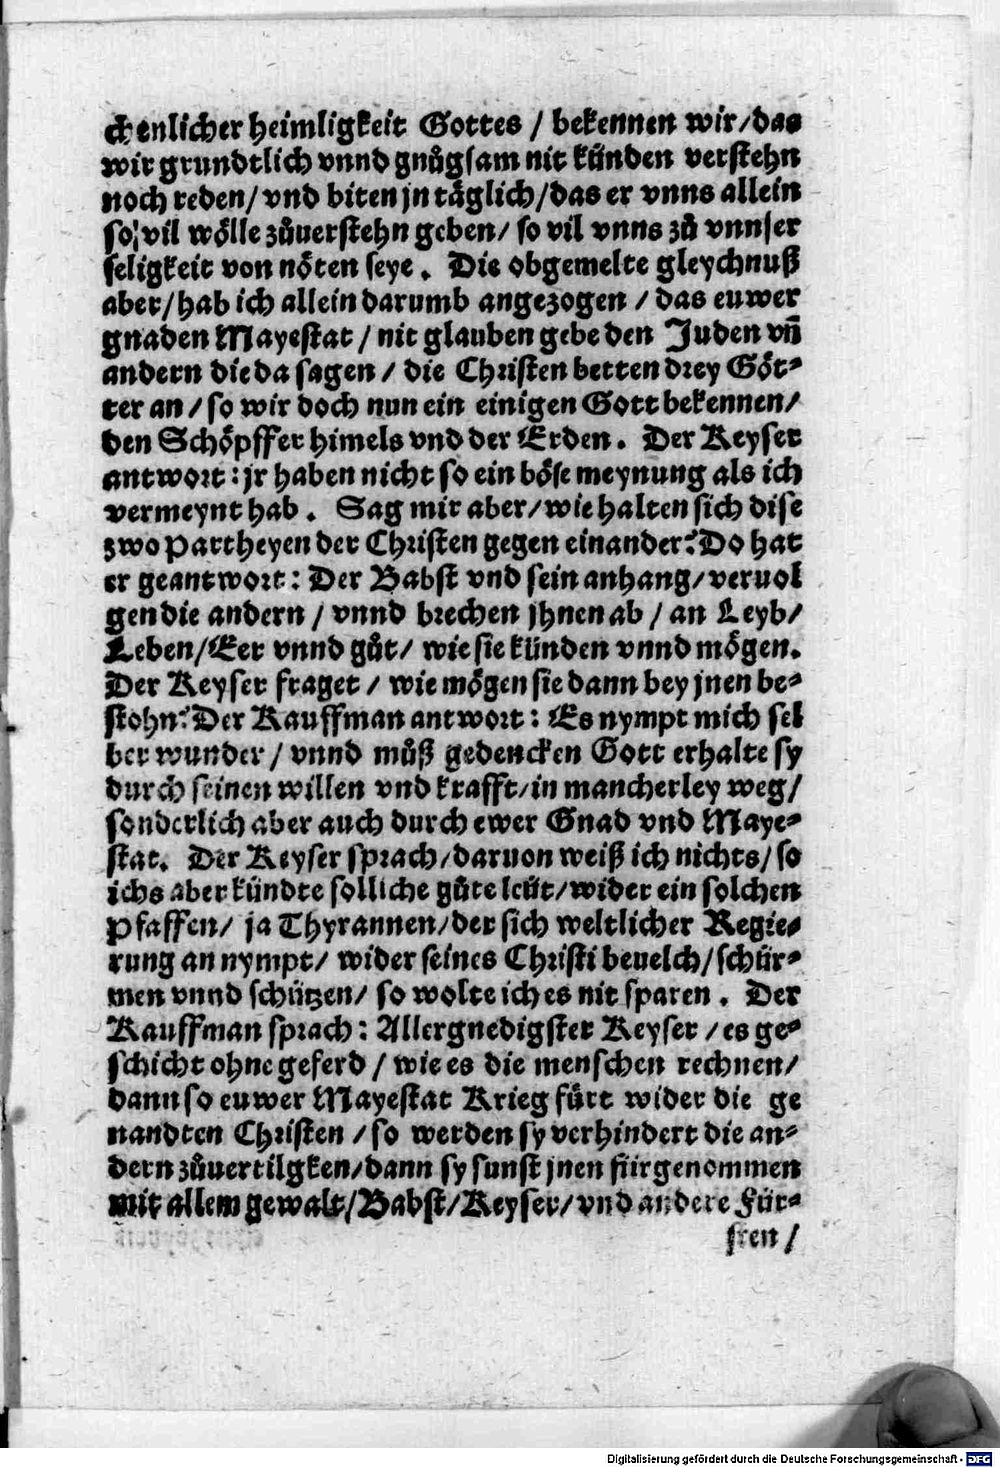 chenlicher heimligkeit Gottes / bekennen wir / das
wir grundtlich vnnd gnůgsam nit künden verstehn
noch reden / vnd biten jn täglich / das er vnns allein
so vil wölle zůuerstehn geben / so vil vnns zů vnnser
seligkeit von nöten seye. Die obgemelte gleychnuß
aber / hab ich allein darumb angezogen / das euwer
gnaden Mayestat / nit glauben gebe den Juden vñ
andern die da sagen / die Christen betten drey Göt⸗
ter an / so wir doch nun ein einigen Gott bekennen /
den Schöpffer himels vnd der Erden. Der Keyser
antwort: jr haben nicht so ein böse meynung als ich
vermeynt hab. Sag mir aber / wie halten sich dise
zwo Partheyen der Christen gegen einander? Do hat
er geantwort: Der Babst vnd sein anhang / veruol
gen die andern / vnnd brechen jhnen ab / an Leyb /
Leben / Eer vnnd gůt / wie sie künden vnnd mögen.
Der Keyser fraget / wie mögen sie dann bey jnen be⸗
stohn? Der Kauffman antwort: Es nympt mich sel
ber wunder / vnnd můß gedencken Gott erhalte sy
durch seinen willen vnd krafft / in mancherley weg /
sonderlich aber auch durch ewer Gnad vnd Maye⸗
stat. Der Keyser sprach / daruon weiß ich nichts / so
ichs aber kündte solliche gůte leüt / wider ein solchen
Pfaffen / ja Thyrannen / der sich weltlicher Regie⸗
rung an nympt / wider seines Christi beuelch / schür⸗
men vnnd schützen / so wolte ich es nit sparen. Der
Kauffman sprach: Allergnedigster Keyser / es ge⸗
schicht ohne geferd / wie es die menschen rechnen /
dann so euwer Mayestat Krieg fürt wider die ge
nandten Christen / so werden sy verhindert die an⸗
dern zůuertilgken / dann sy sunst jnen fürgenommen
mit allem gewalt / Babst / Keyser / vnd andere Für⸗
sten /
Digitalisierung gefördert durch die Deutsche Forschungsgemeinschaft - DFG